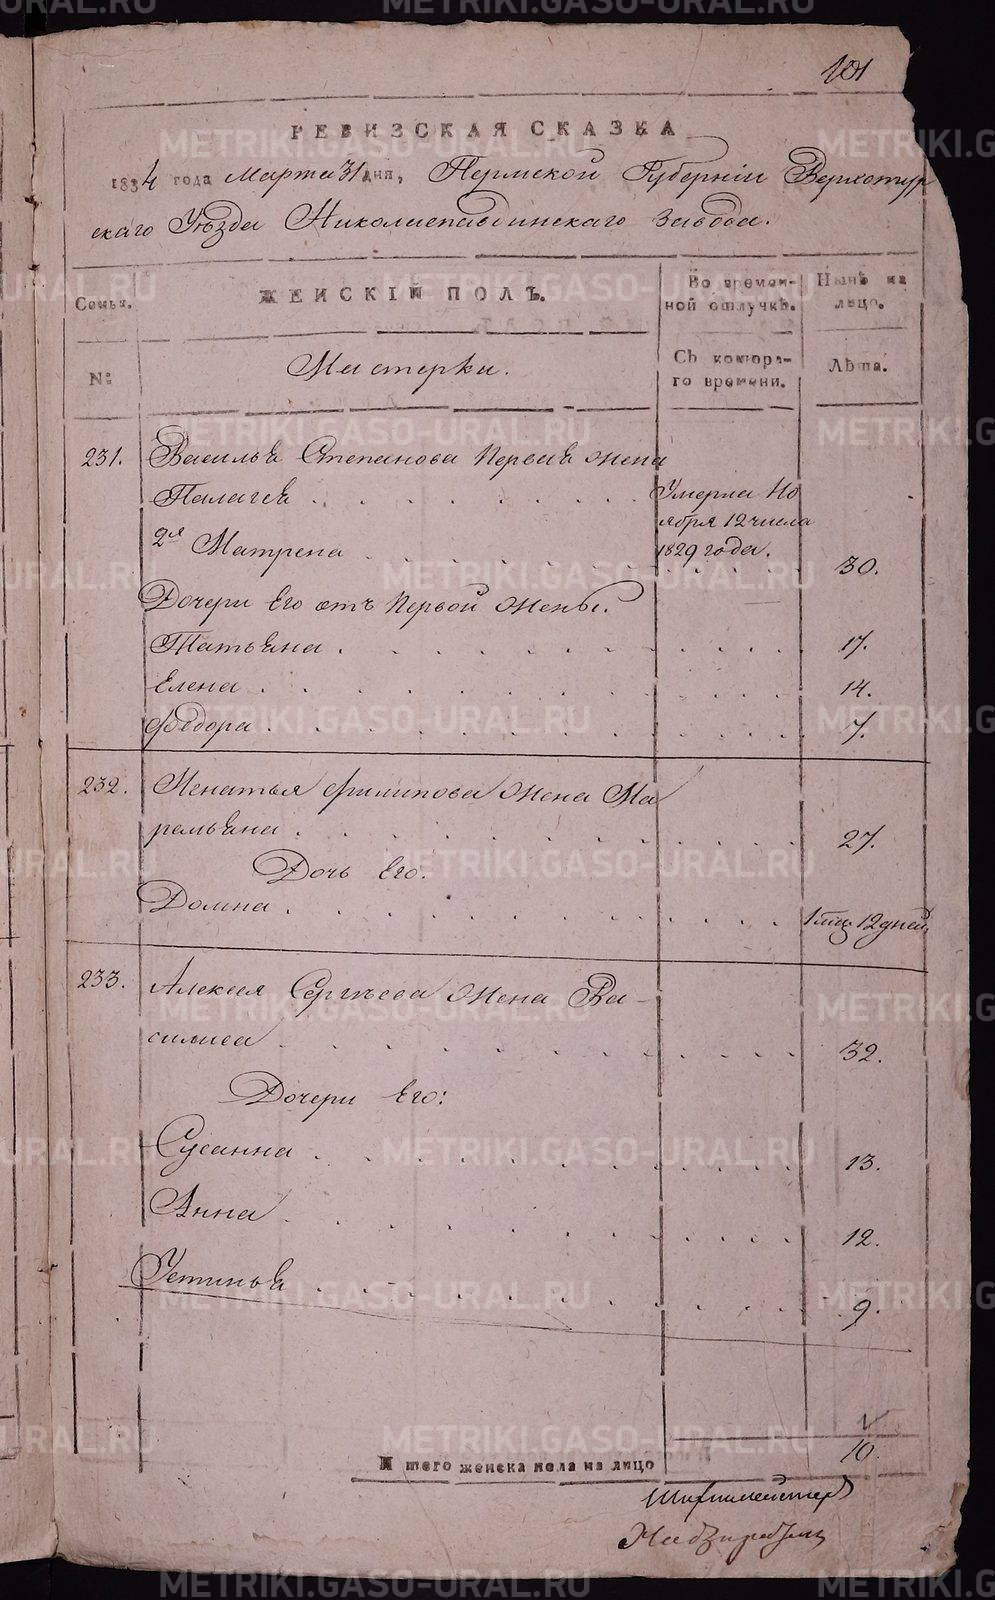 101
РЕВИЗСКАЯ СКАЗКА
1834 года Марта 31 дня, Пермской Губернїи Верхотур
скаго Уѣзда Николаепавдинскаго завода.
Семьи.
ЖЕНСКІЙ ПОЛЪ.
Во времен-
ной отлучкѣ.
Нынѣ на
лицо.
№
Мастерки.
Съ котора-
го времени.
Лѣта.
231. Василья Степанова первая жена
Палагея Умерла Но
ября 12 числа
1829 года.
2я Матрена 30.
Дочери Его отъ первой жены.
Татьяна 17.
Елена 14.
Федора 7.
232. Игнатья Филипова жена Ма
ремьяна 27.
Дочь Его.
Домна 1 мц. 12 дней
233. Алексея Сергѣева жена Ва-
силиса 32.
Дочери Его:
Сусанна 13.
Анна 12.
Устинья 9.
Итого женска пола на лицо 10.
Шихтмейстеръ
METRIKI.GASO-URAL.RU